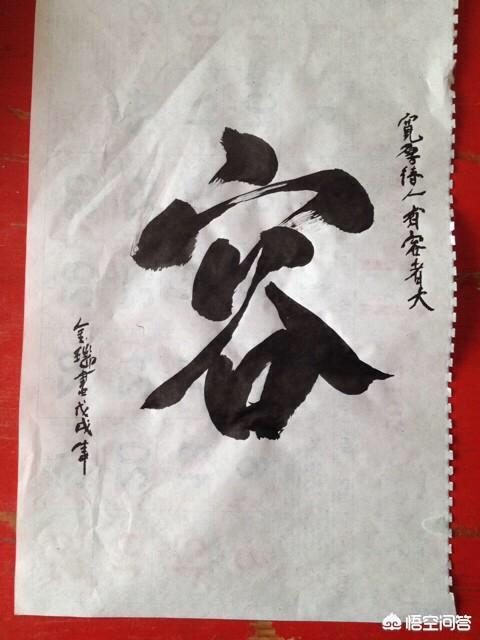 寬厚待人有容者大
容
金書戊戌年
悟空问答